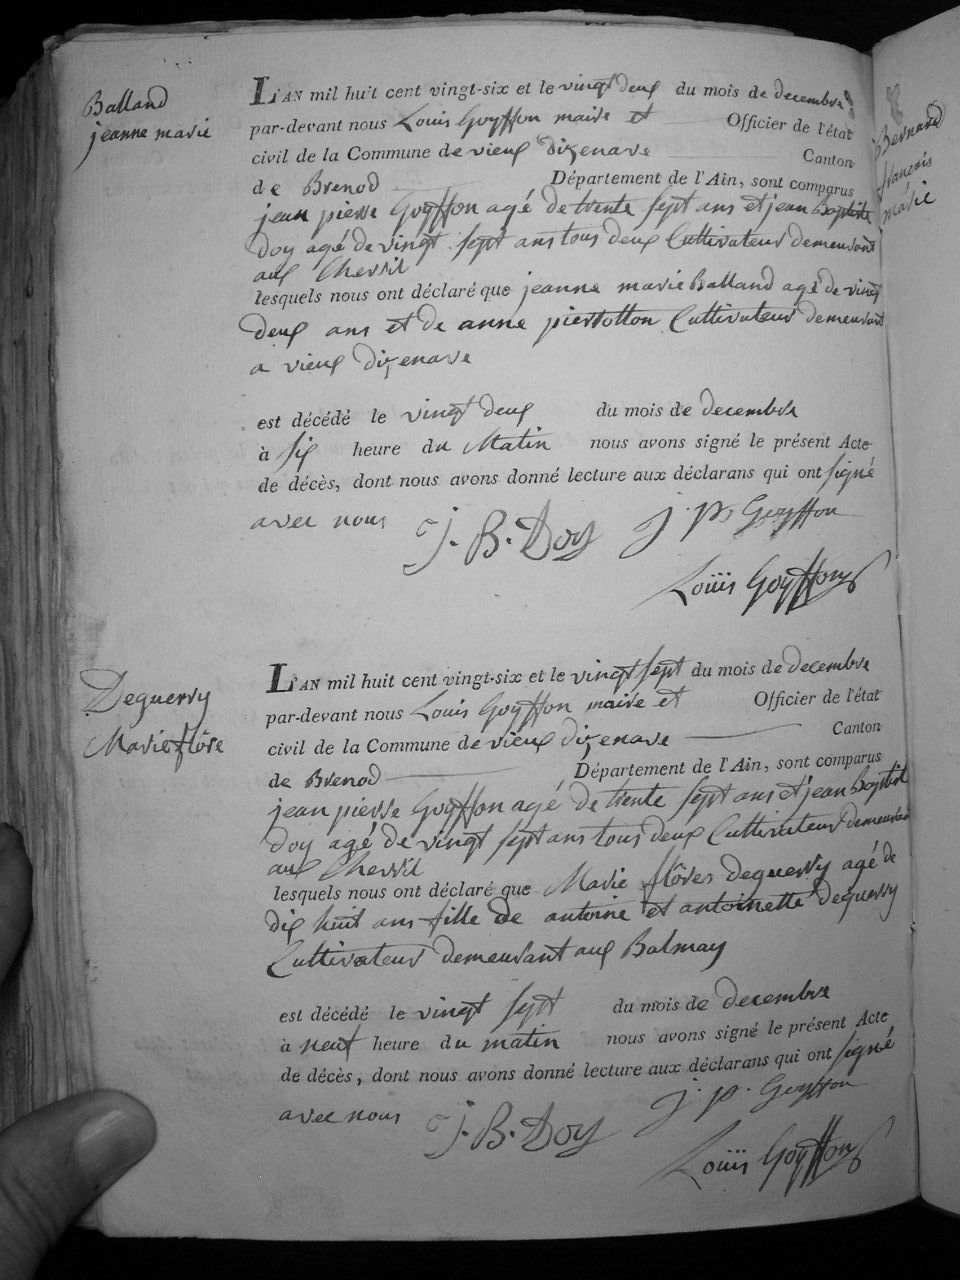 Balland
jeanne marie
L'AN mil huit cent vingt-six et le vingt deux du mois de decembre
par-devant nous Louis Goyffon maire et Officier de l'état
civil de la Commune de vieux dizenave Canton
de Brenod Département de l'Ain, sont comparus
jean pierre Goyffon agé de trente sept ans et jean Baptiste
Doy agé de vingt sept ans tous deux Cultivateur demeurant
aux Chevril
lesquels nous ont déclaré que jeanne marie Balland agé de vingt
deux ans et de anne pierrotton Cultivateur demeurant
a vieux dizenave
est décédé le vingt deux du mois de decembre
à six heure du Matin nous avons signé le présent Acte
de décès, dont nous avons donné lecture aux déclarans qui ont signé
avec nous J. B. Doy j. p. Goyffon
Louis Goyffon
Deguerry
Marie flore
L'AN mil huit cent vingt-six et le vingt sept du mois de decembre
par-devant nous Louis Goyffon maire et Officier de l'état
civil de la Commune de vieux dizenave Canton
de Brenod Département de l'Ain, sont comparus
jean pierre Goyffon agé de trente sept ans et jean Baptist
Doy agé de vingt sept ans tous deux Cultivateur demeurant
aux Chevril
lesquels nous ont déclaré que Marie flôres Deguerry agé de
dix huit ans fille de antoine et antoinette Deguerry
Cultivateur demeurant aux Balmay
est décédé le vingt sept du mois de decembre
à neuf heure du matin nous avons signé le présent Acte
de décès, dont nous avons donné lecture aux déclarans qui ont signé
avec nous J. B. Doy j. p. Goyffon
Louis Goyffon
Bernard
francois
marie